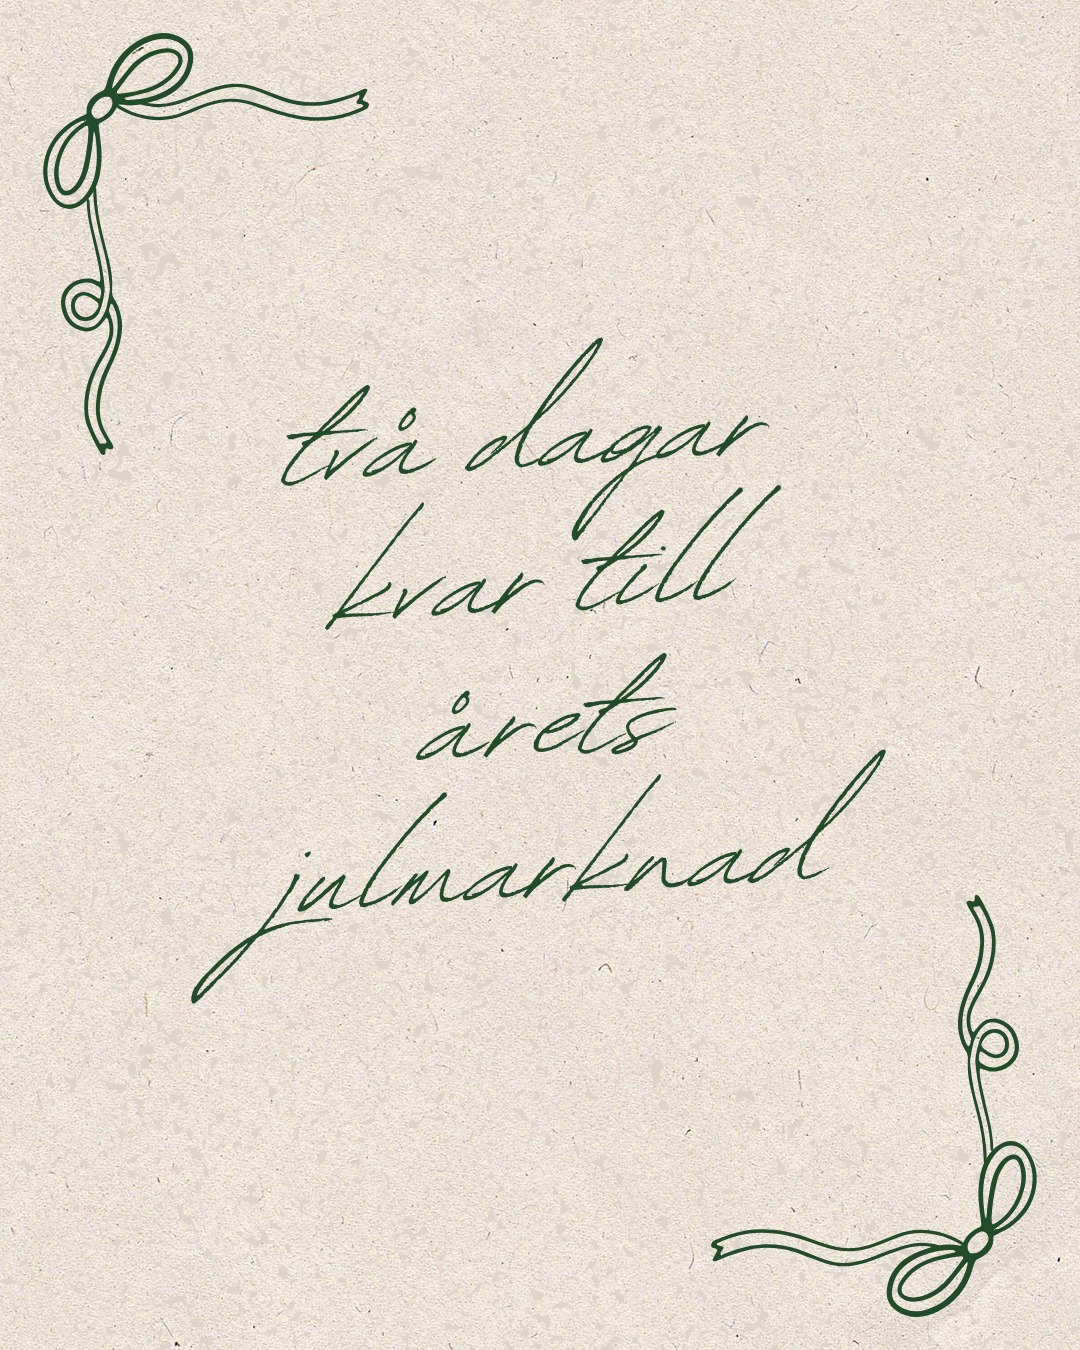 två dagar
kvar till
årets
julmarknad